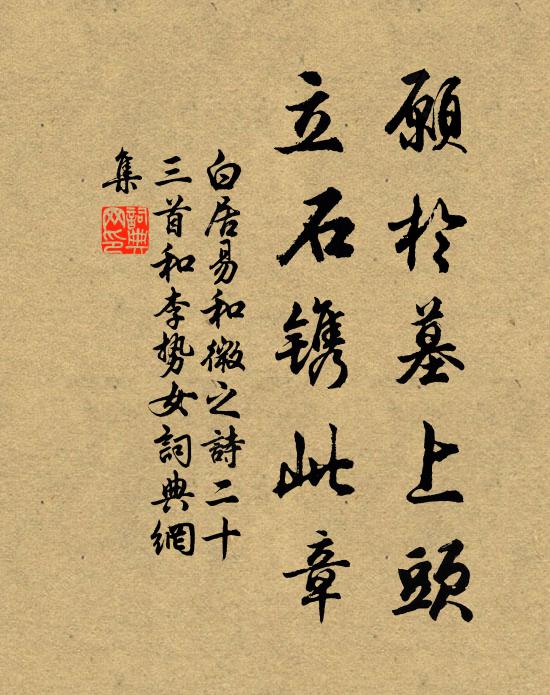 願於墓上頭
立石鐫此章
白居易和微之詩二十
三首和李势女詞典網
集
詞典
网印